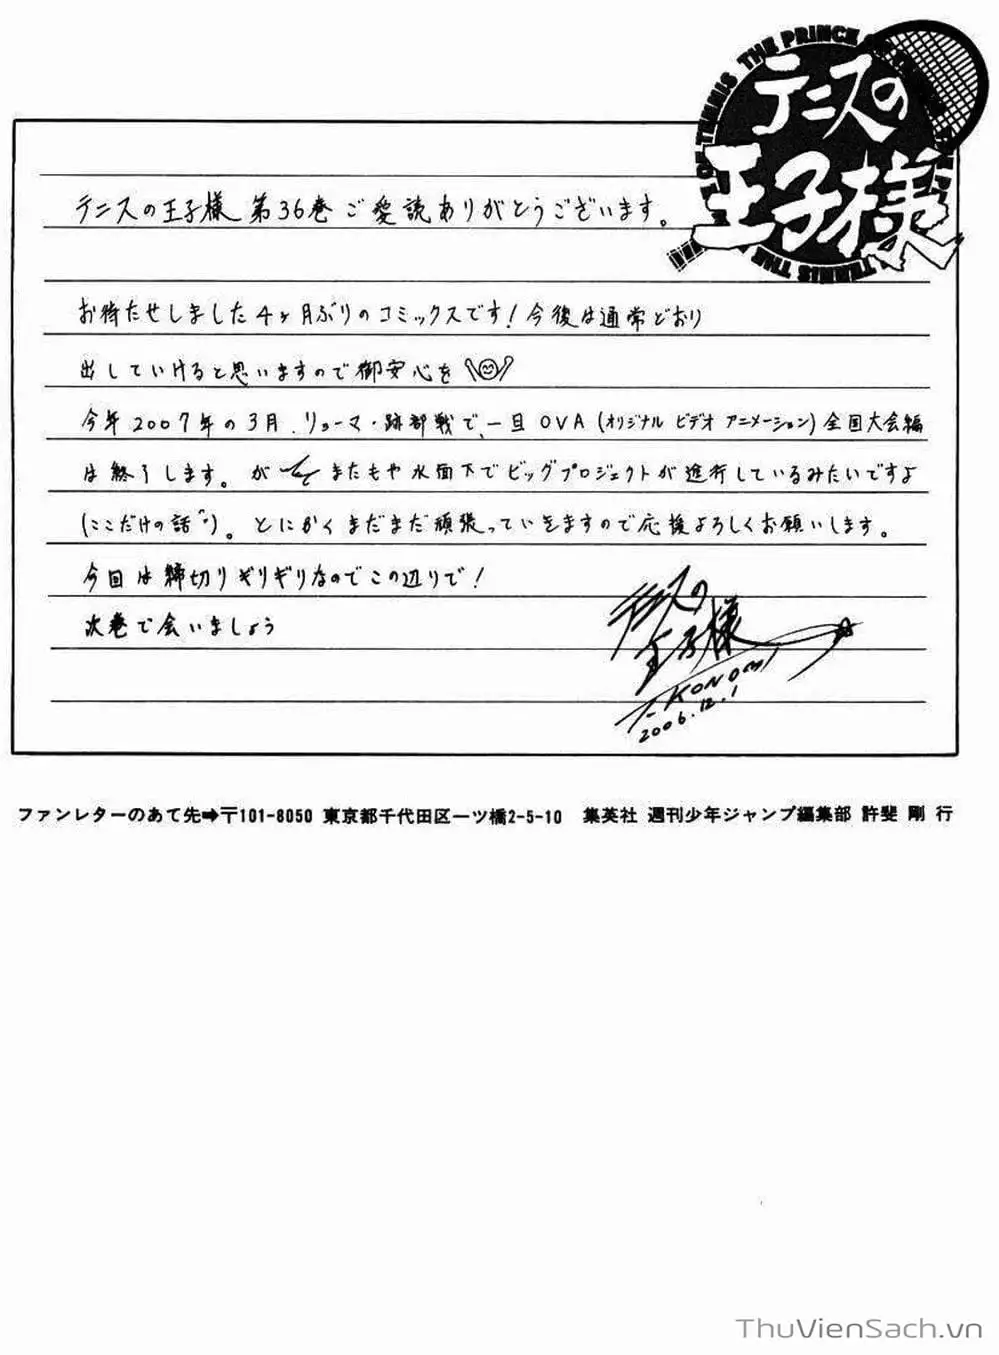 THE PRINCE OF TENNIS THE
テニスの
王子様
テニスの王子様 第36巻 ご愛読ありがとうございます。
お待たせしました4ヶ月ぶりのコミックスです!今後は通常どおり
出していけると思いますので御安心を
今年2007年の3月、リョーマ・跡部戦で、一旦OVA(オリジナル ビデオ アニメーション)全国大会編
は終了します。が またもや水面下でビッグプロジェクトが進行しているみたいですよ
(ここだけの話)。とにかくまだまだ頑張っていきますので応援よろしくお願いします。
今回は締切りギリギリなのでこの辺りで!
次巻で会いましょう
テニスの
王子様
T-KONOMI
2006.12.1
ファンレターのあて先➡〒101-8050 東京都千代田区一ツ橋2-5-10 集英社 週刊少年ジャンプ編集部 許斐 剛 行
ThuVienSach.vn